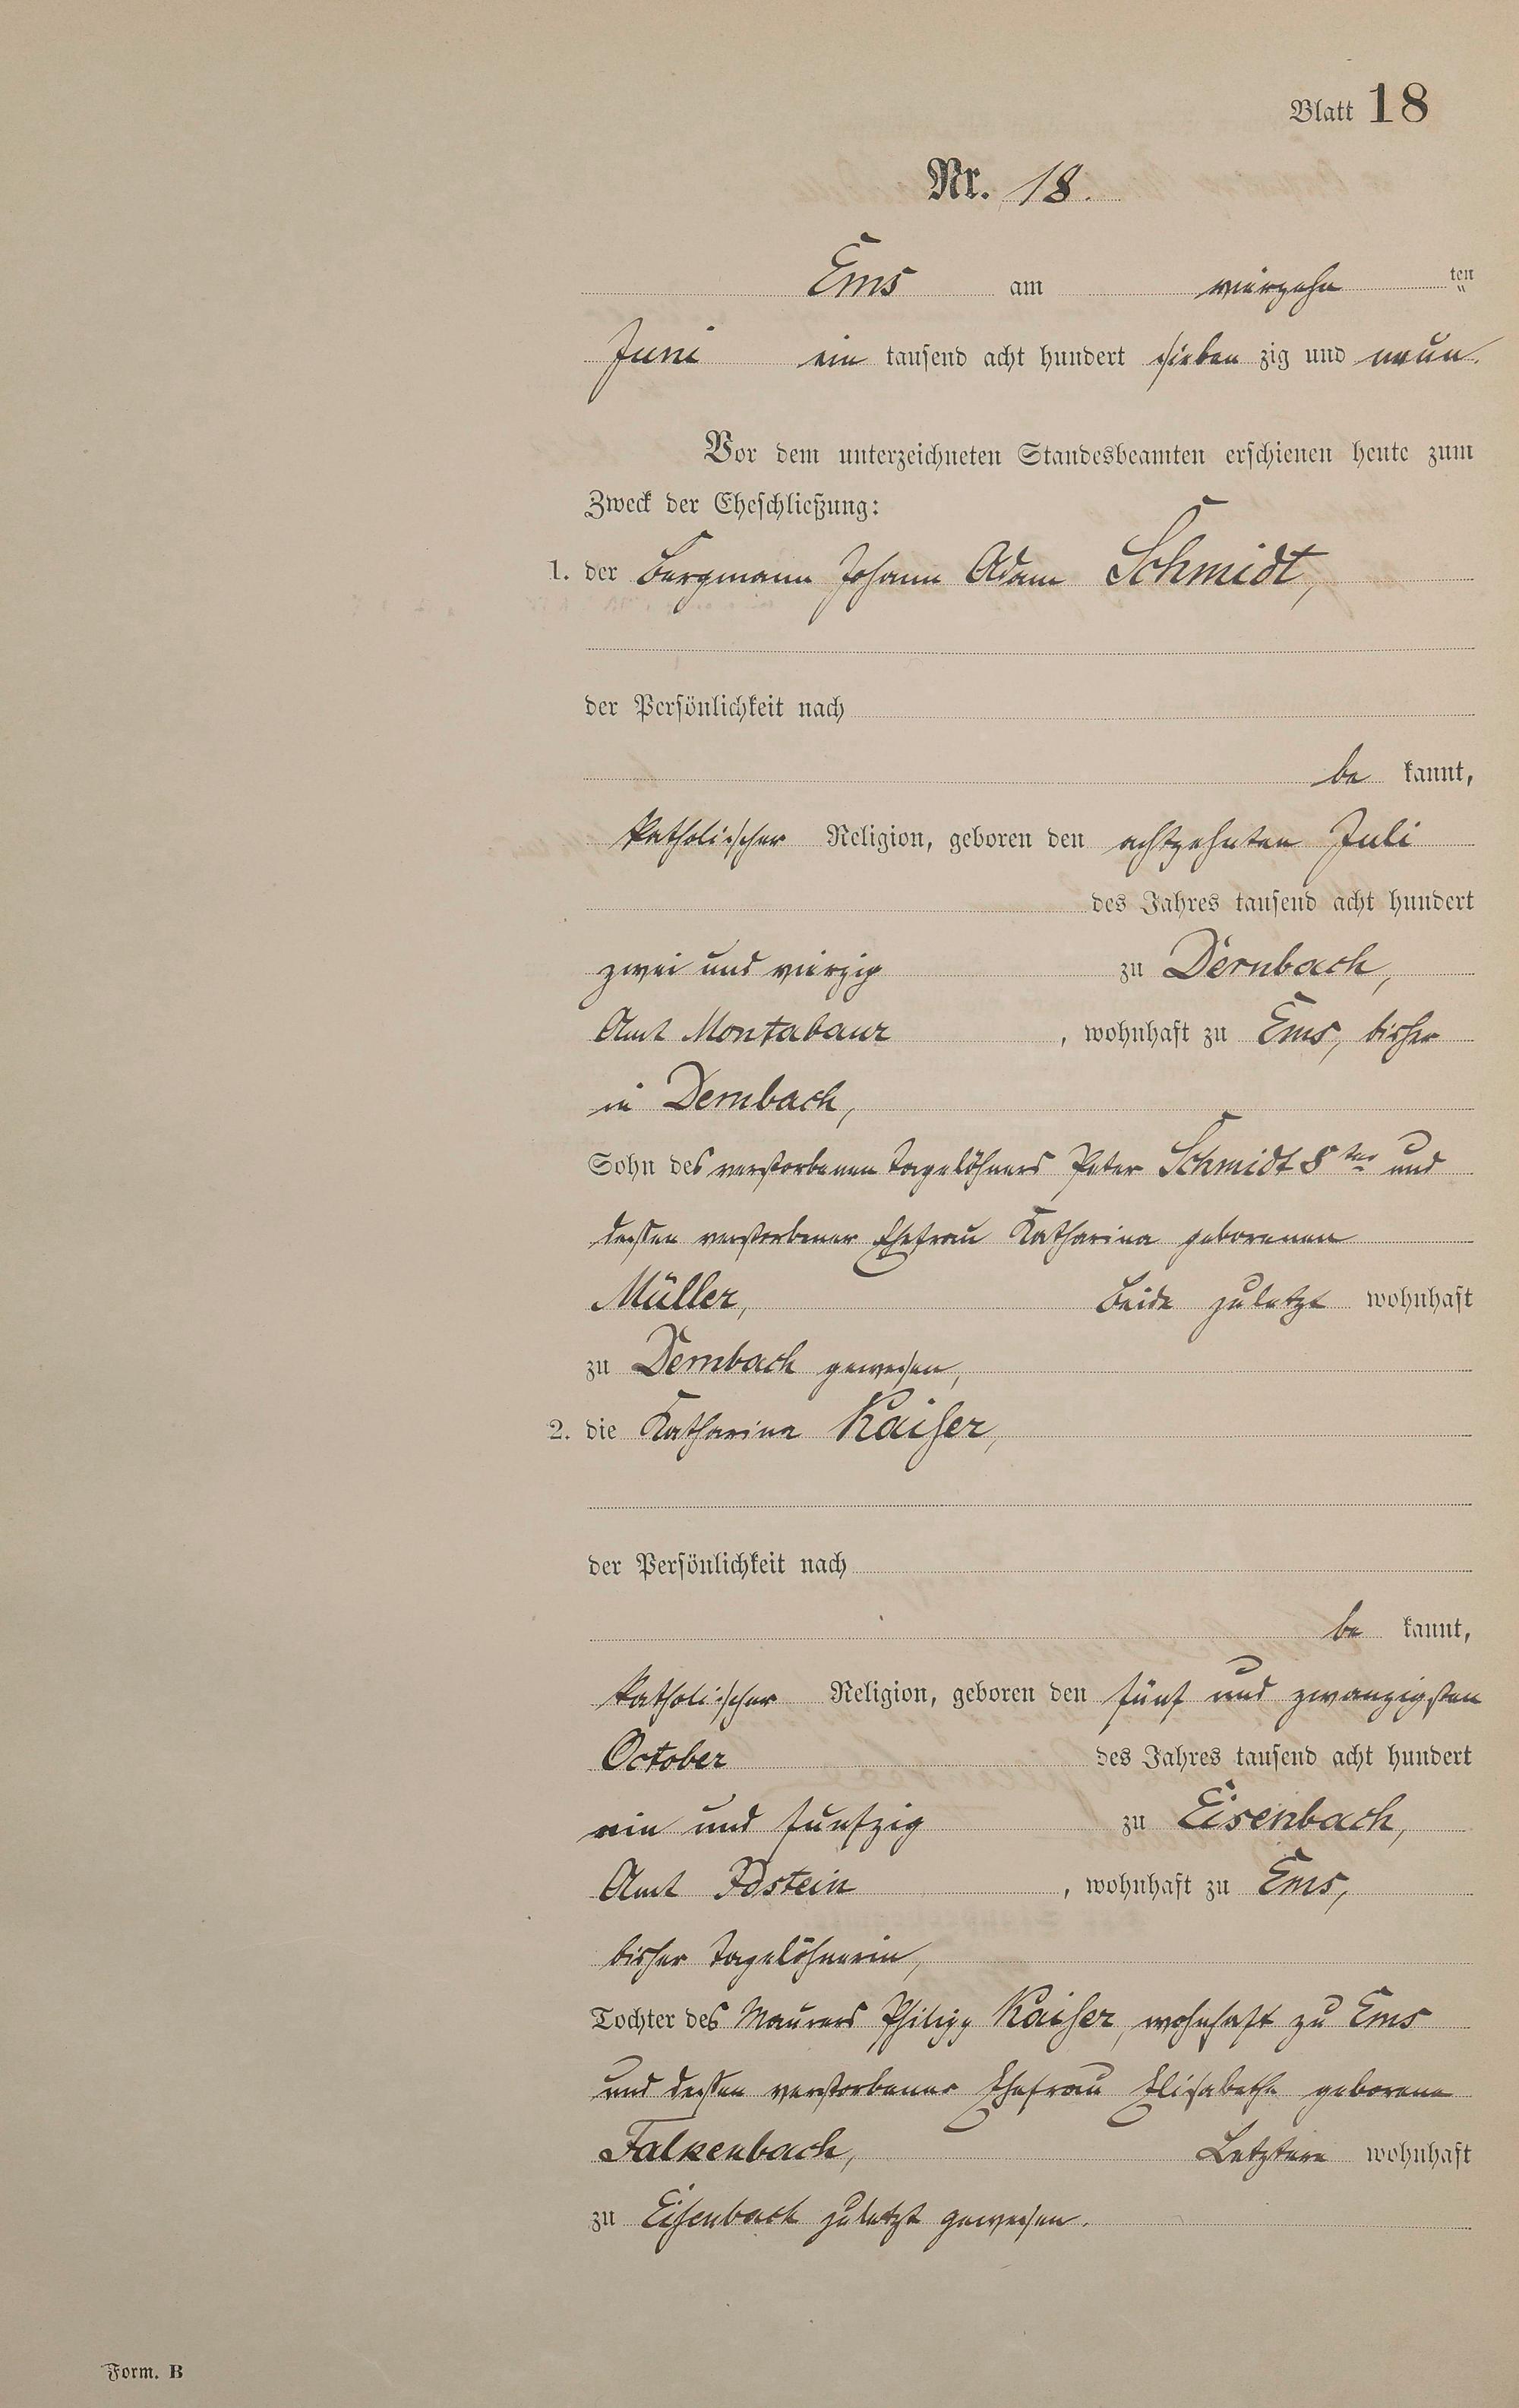 Blatt 18
Nr. 18.
Ems am vierzehn ten
Juni ein tausend acht hundert sieben zig und neun.
Vor dem unterzeichneten Standesbeamten erschienen heute zum
Zweck der Eheschließung:
1. der Bergmann Johann Adam Schmidt,
der Persönlichkeit nach
be kannt,
katholischer Religion, geboren den achtzehnten Juli
des Jahres tausend acht hundert
zwei und vierzig zu Dernbach,
Amt Montabaur, wohnhaft zu Ems, bisher
in Dernbach,
Sohn des verstorbenen Tagelöhners Peter Schmidt 8ter und
dessen verstorbener Ehefrau Katharina geborenen
Müller, Beide zuletzt wohnhaft
zu Dernbach gewesen,
2. die Katharina Kaiser,
der Persönlichkeit nach
be kannt,
katholischer Religion, geboren den fünf und zwanzigsten
October des Jahres tausend acht hundert
ein und funfzig zu Eisenbach,
Amt Idstein, wohnhaft zu Ems,
bisher Tagelöhnerin,
Tochter des Maurers Philipp Kaiser, wohnhaft zu Ems
und dessen verstorbener Ehefrau Elisabethe geborene
Falkenbach, Letztere wohnhaft
zu Eisenbach zuletzt gewesen.
Form. B